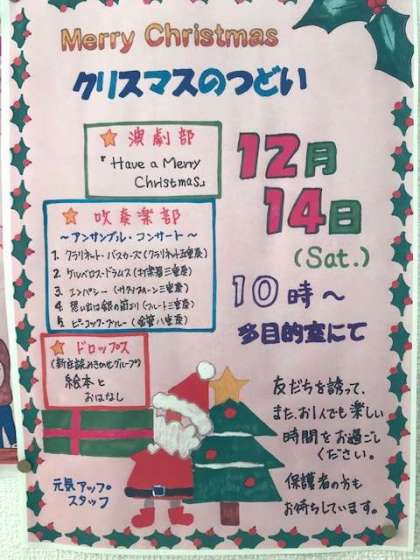 Merry Christmas
クリスマスのつどい
演劇部
『Have a Merry
Christmas』
12月
14日
(Sat.)
10時～
多目的室にて
吹奏楽部
～アンサンブル・コンサート～
1. クラリネット・バスカーズ(クラリネット五重奏)
2. ケルベロス・ドラムス(打楽器三重奏)
3. エンパシー(サクソフォーン三重奏)
4. 想い出は銀の笛より(フルート三重奏)
5. ピーコック・ブルー(管八重奏)
ドロップス
(新庄読みきかせグループ)
絵本と
おはなし
友だちを誘って、
また、お1人でも楽しい
時間をお過ごし
ください。
保護者の方も
お待ちしています。
元気アップ
スタッフ